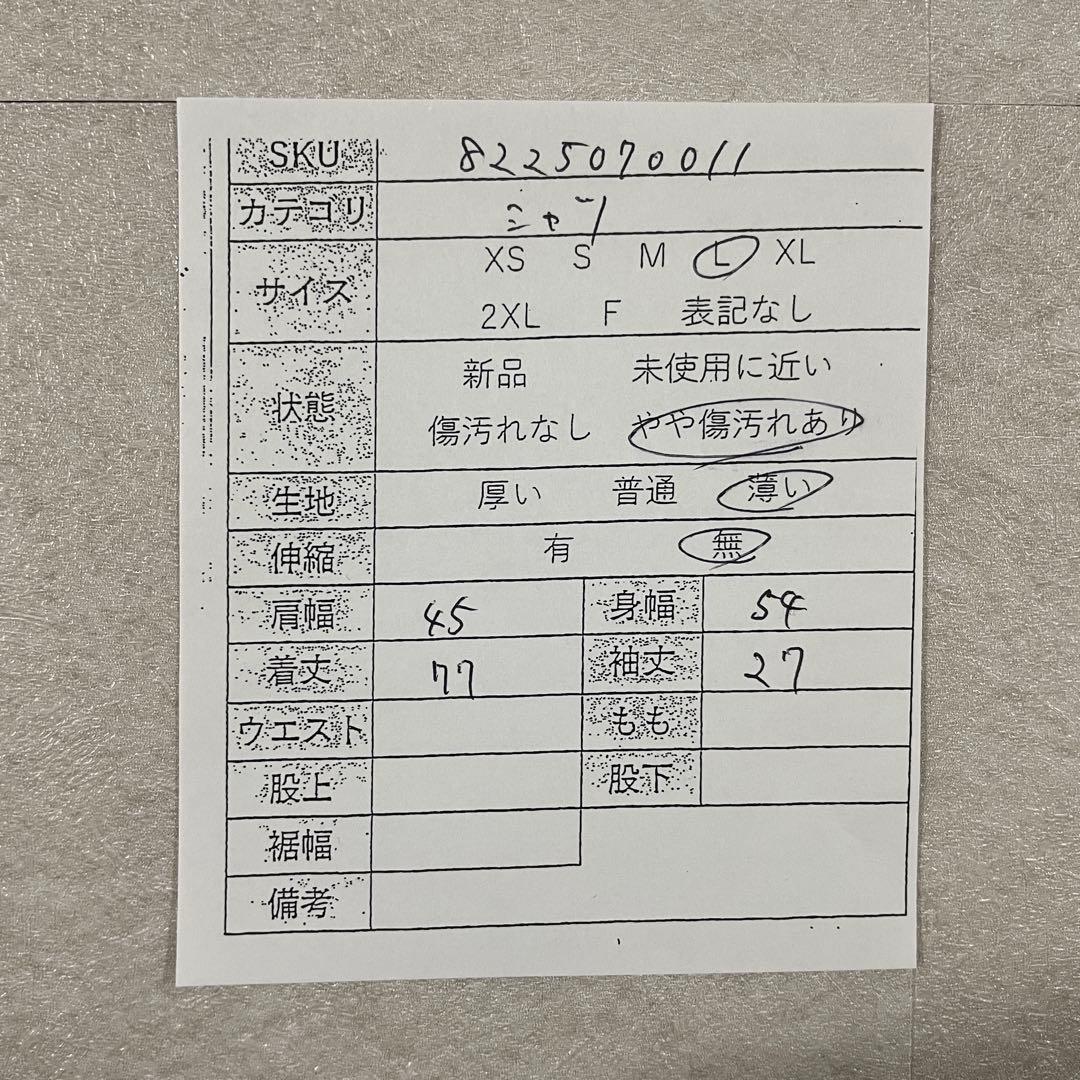 SKU 8225070011
カテゴリ シャツ
サイズ XS S M L XL
2XL F 表記なし
状態 新品 未使用に近い
傷汚れなし やや傷汚れあり
生地 厚い 普通 薄い
伸縮 有 無
肩幅 45 身幅 54
着丈 77 袖丈 27
ウエスト もも
股上 股下
裾幅
備考